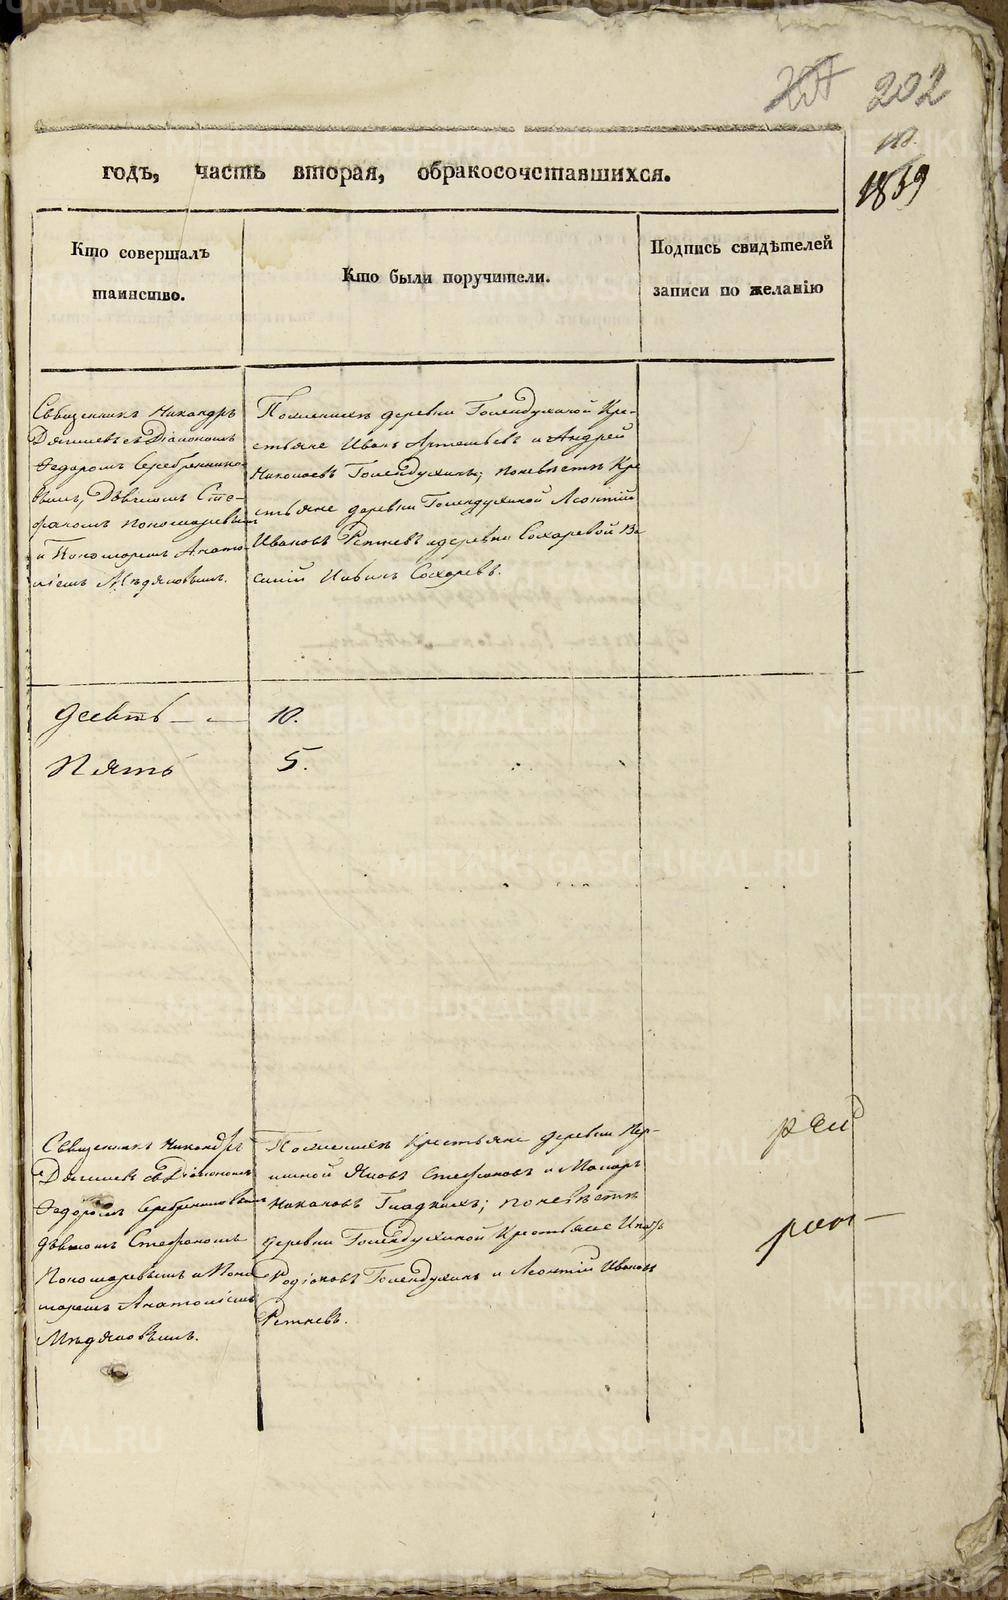 202
1839
годъ, часть вторая, обракосочетавшихся.
Кто совершалъ
таинство.
Кто были поручители.
Подпись свидѣтелей
записи по желанію
Священникъ Никандръ
Дягилевъ съ Діакономъ
Федоромъ Серебреннико-
вымъ, Дьячкомъ Сте-
фаномъ Пономаревымъ
и Пономаремъ Анато-
ліемъ Мѣдяковымъ.
По женихѣ деревни Голендухиной Кре-
стьяне Иванъ Артемьевъ и Андрей
Николаевъ Голендухины; по невѣстѣ Кре
стьяне деревни Голендухиной Леонтій
Ивановъ Ретневъ и деревни Сохаревой Ва
силій Сохаревъ.
десять 10.
Пять 5.
Священникъ Никандръ
Дягилевъ съ Діакономъ
Федоромъ Серебренниковымъ
дьячкомъ Стефаномъ
Пономаревымъ и Поно
маремъ Анатоліемъ
Мѣдяковымъ.
По женихѣ Крестьяне деревни Пер-
шиной Яковъ Стефановъ и Макаръ
Гладкихъ; по невѣстѣ
деревни Голендухиной Крестьяне
Родіоновъ Голендухинъ и Леонтій Ивановъ
Ретневъ.
METRIKI.GASO-URAL.RU